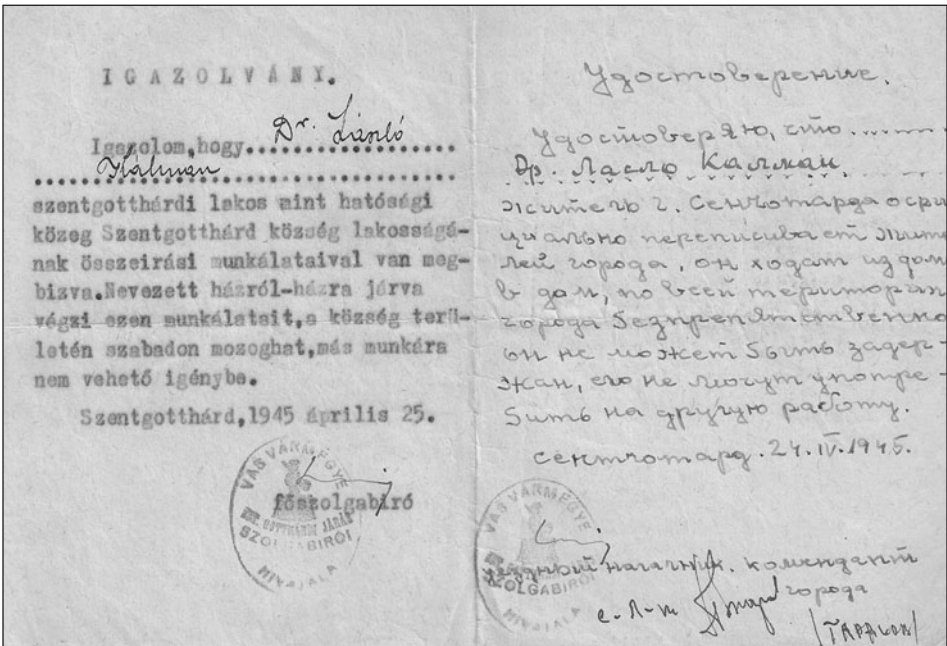 IGAZOLVÁNY.
Igazolom,hogy..Dr. László
Kálmán
szentgotthárdi lakos mint hatósági
közeg Szentgotthárd község lakosságá-
nak összeirási munkálataival van meg-
bizva.Nevezett házról-házra járva
végzi ezen munkálatait,a község terü-
letén szabadon mozoghat,más munkára
nem vehető igénybe.
Szentgotthárd,1945 április 25.
főszolgabiró
VAS VÁRMEGYE
SZT. GOTTHÁRDI JÁRÁS
SZOLGABIRÓI
HIVATALA
Удостоверение.
Удостоверяю, что
Др. Ласло Калман
житель г. Сенготарда офи
циально переписывает жите
лей города, он ходит из дом
в дом, по всей територии
города безпрепятственно
он не может быть задер-
жан, его не могут употре-
бить на другую работу.
Сентготард. 24.IV.1945.
VAS VÁRMEGYE
SZOLGABIRÓI
HIVATALA
уездный началник. комендант
города
с. л-т